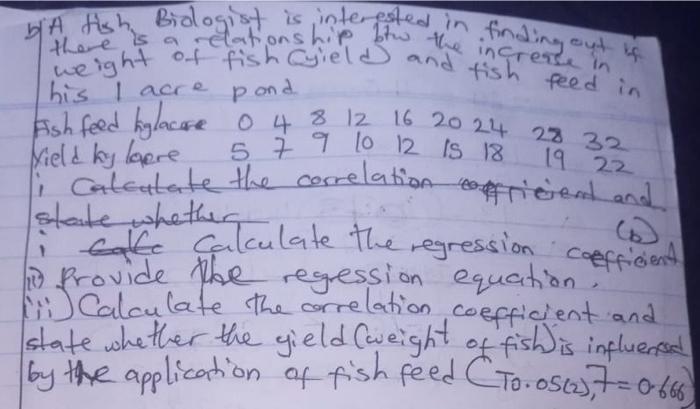 b) A fish Biologist is interested in finding out if
there is a relationship btw the increase in
weight of fish (yield) and fish feed in
his 1 acre pond
Fish feed kg/acre 0 4 8 12 16 20 24 28 32
Yield kg/acre 5 7 9 10 12 15 18 19 22
i Calculate the correlation coefficient and
state whether
i Calc Calculate the regression coefficient (b)
ii) Provide the regession equation.
iii) Calculate the correlation coefficient and
state whether the yield (weight of fish) is influenced
by the application of fish feed (T0.05(2), 7 = 0.666)